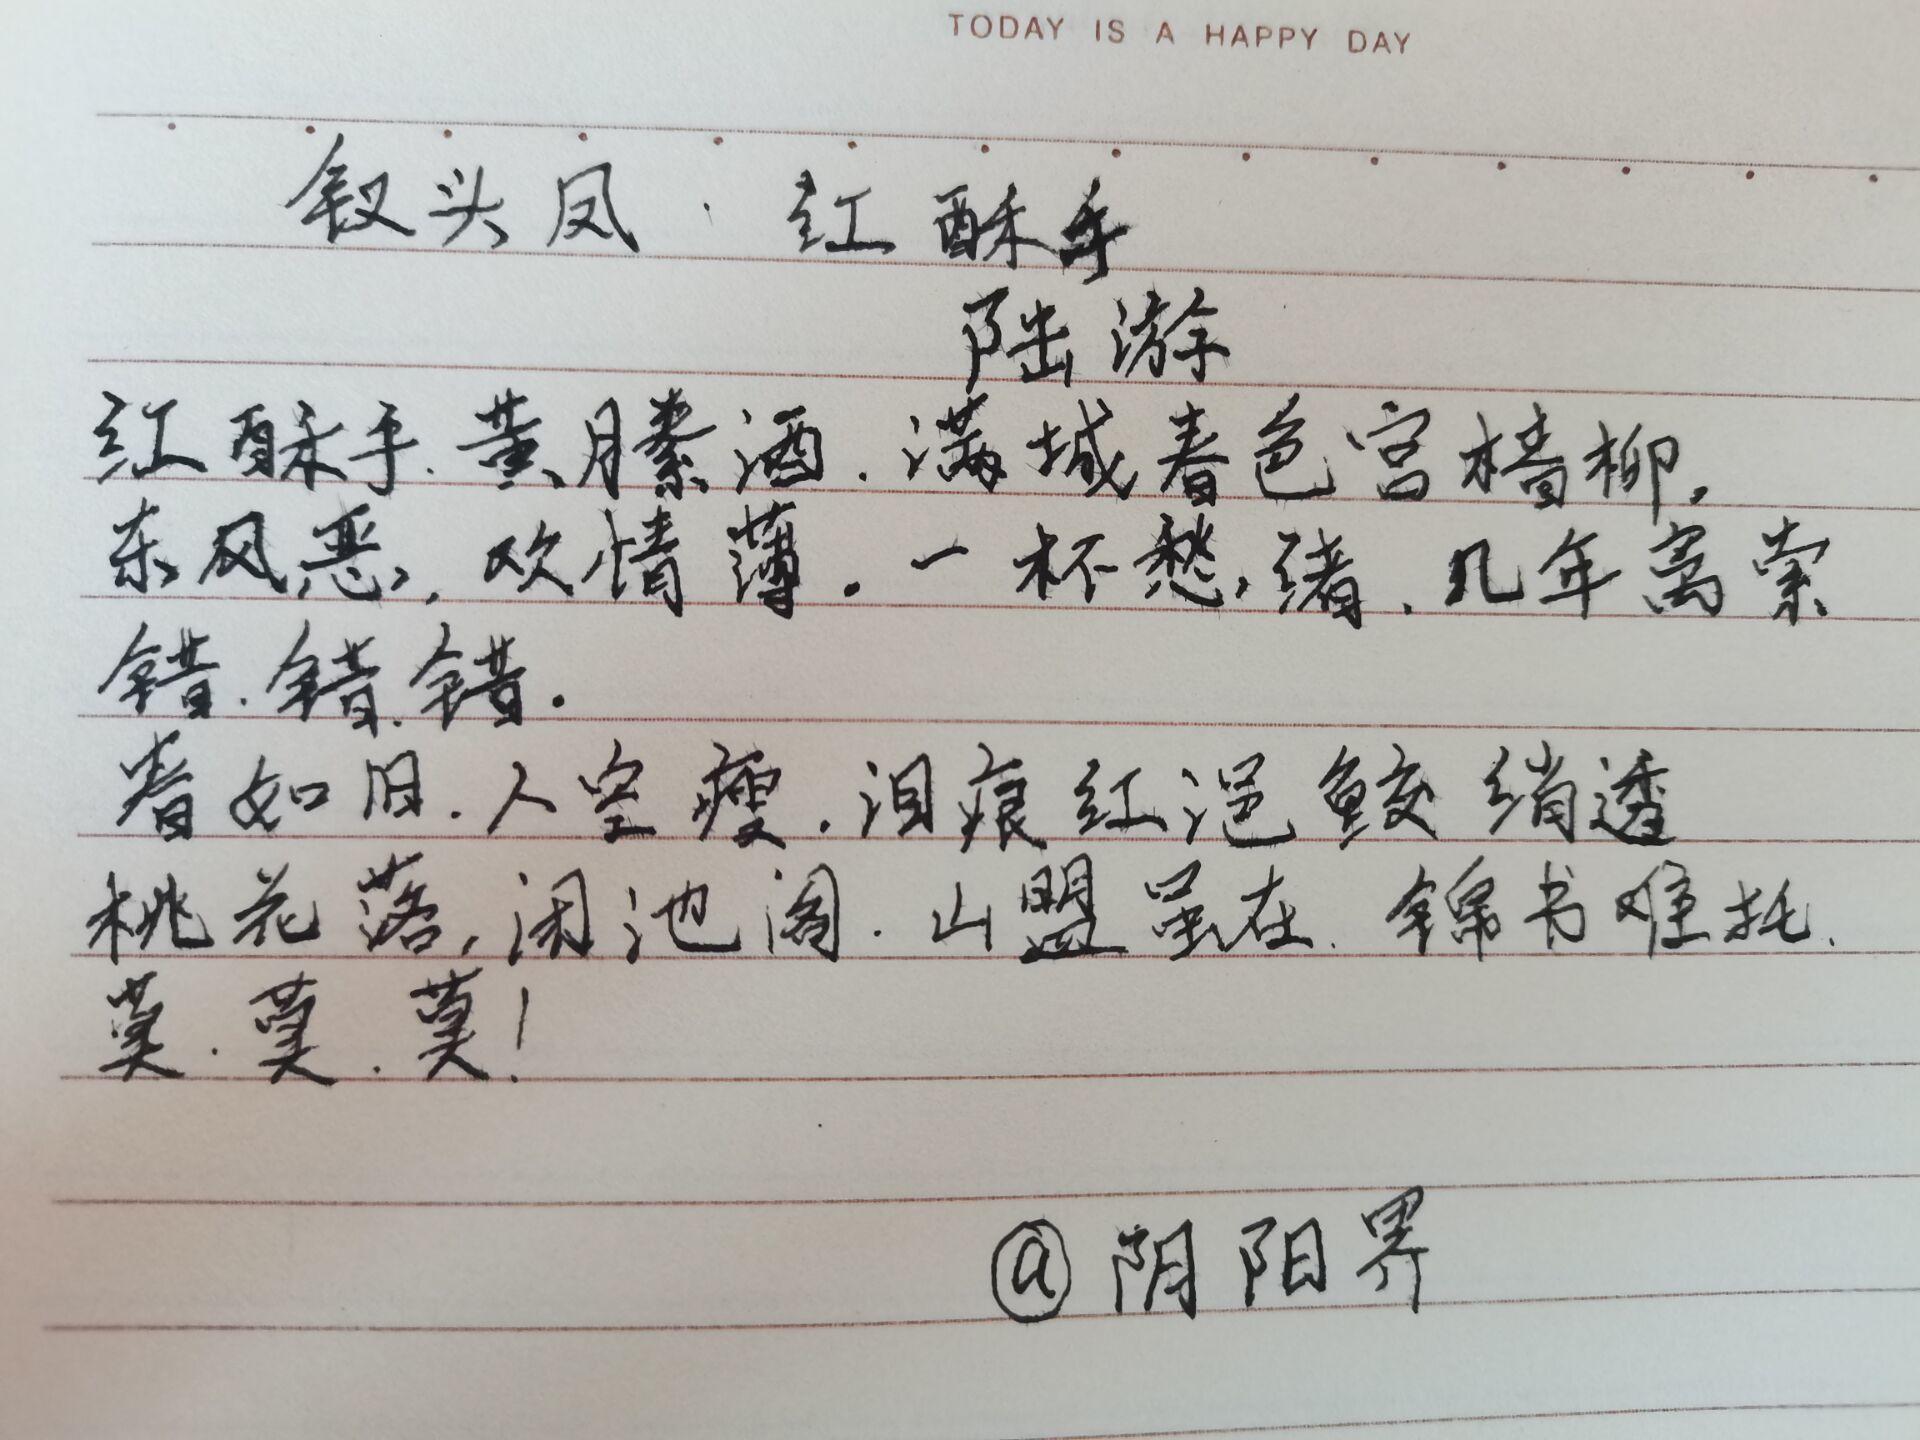 TODAY IS A HAPPY DAY
钗头凤·红酥手
陆游
红酥手.黄縢酒.满城春色宫墙柳,
东风恶,欢情薄.一杯愁绪.几年离索
错.错.错.
春如旧.人空瘦.泪痕红浥鲛绡透
桃花落,闲池阁.山盟虽在.锦书难托.
莫.莫.莫!
@阴阳界